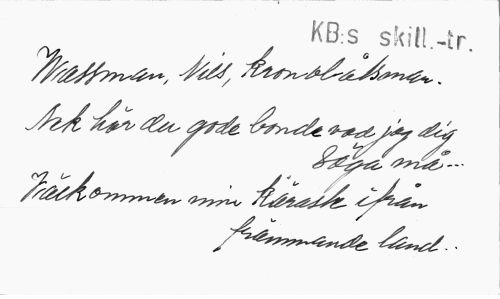 KB:s skill.-tr.
Wassman, Nils, kronobåtsman.
Ack hör du gode bonde vad jag dig
säga må...
Välkommen min käraste ifrån
främmande land..